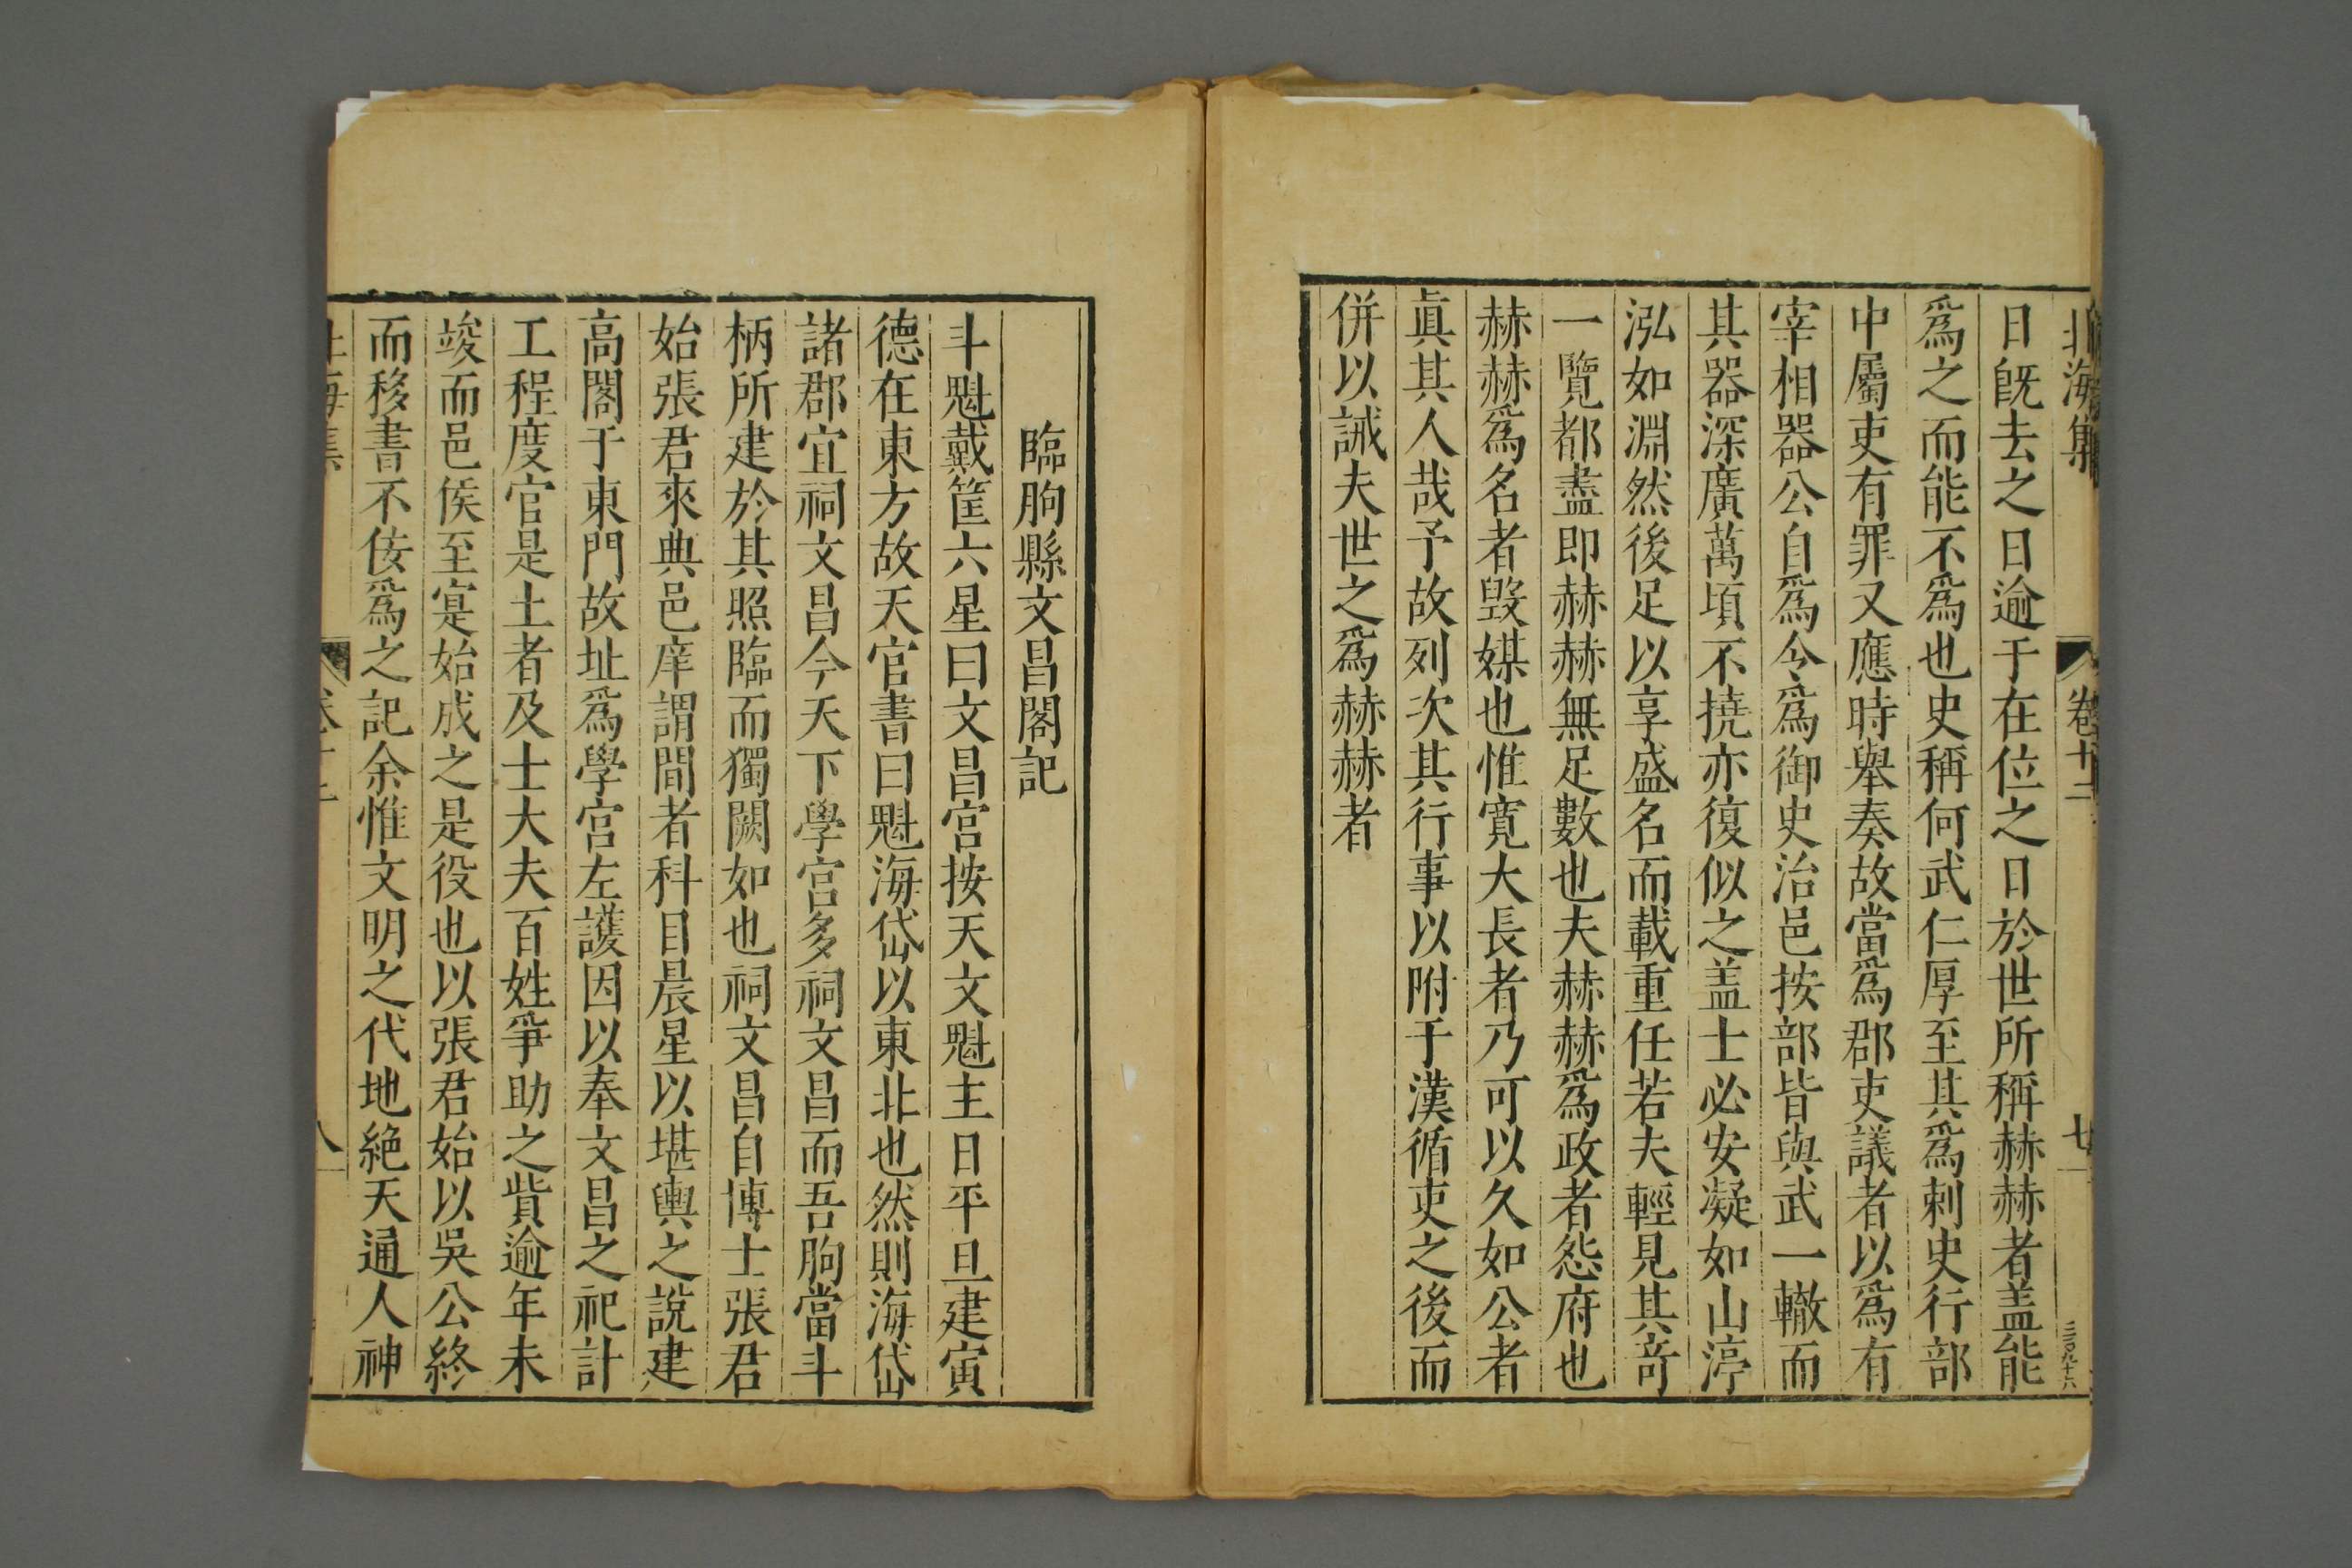 北海集 卷十二 七
日旣去之日逾于在位之日於世所稱赫赫者盖能
爲之而能不爲也史稱何武仁厚至其爲刺史行部
中屬吏有罪又應時舉奏故當爲郡吏議者以爲有
宰相器公自爲令爲御史治邑按部皆與武一轍而
其器深廣萬頃不撓亦復似之盖士必安凝如山渟
泓如淵然後足以享盛名而載重任若夫輕見其竒
一覽都盡即赫赫無足數也夫赫赫爲政者怨府也
赫赫爲名者毁媒也惟寛大長者乃可以久如公者
眞其人哉予故列次其行事以附于漢循吏之後而
併以誡夫世之爲赫赫者
臨朐縣文昌閣記
斗魁戴筐六星曰文昌宮按天文魁主日平旦建寅
德在東方故天官書曰魁海岱以東北也然則海岱
諸郡宜祠文昌今天下學宫多祠文昌而吾朐當斗
柄所建於其照臨而獨闕如也祠文昌自博士張君
始張君來典邑庠謂間者科目晨星以堪輿之說建
高閣于東門故址爲學宫左護因以奉文昌之祀計
工程度官是土者及士大夫百姓爭助之貲逾年未
竣而邑侯至寔始成之是役也以張君始以吳公終
而移書不佞爲之記余惟文明之代地絶天通人神